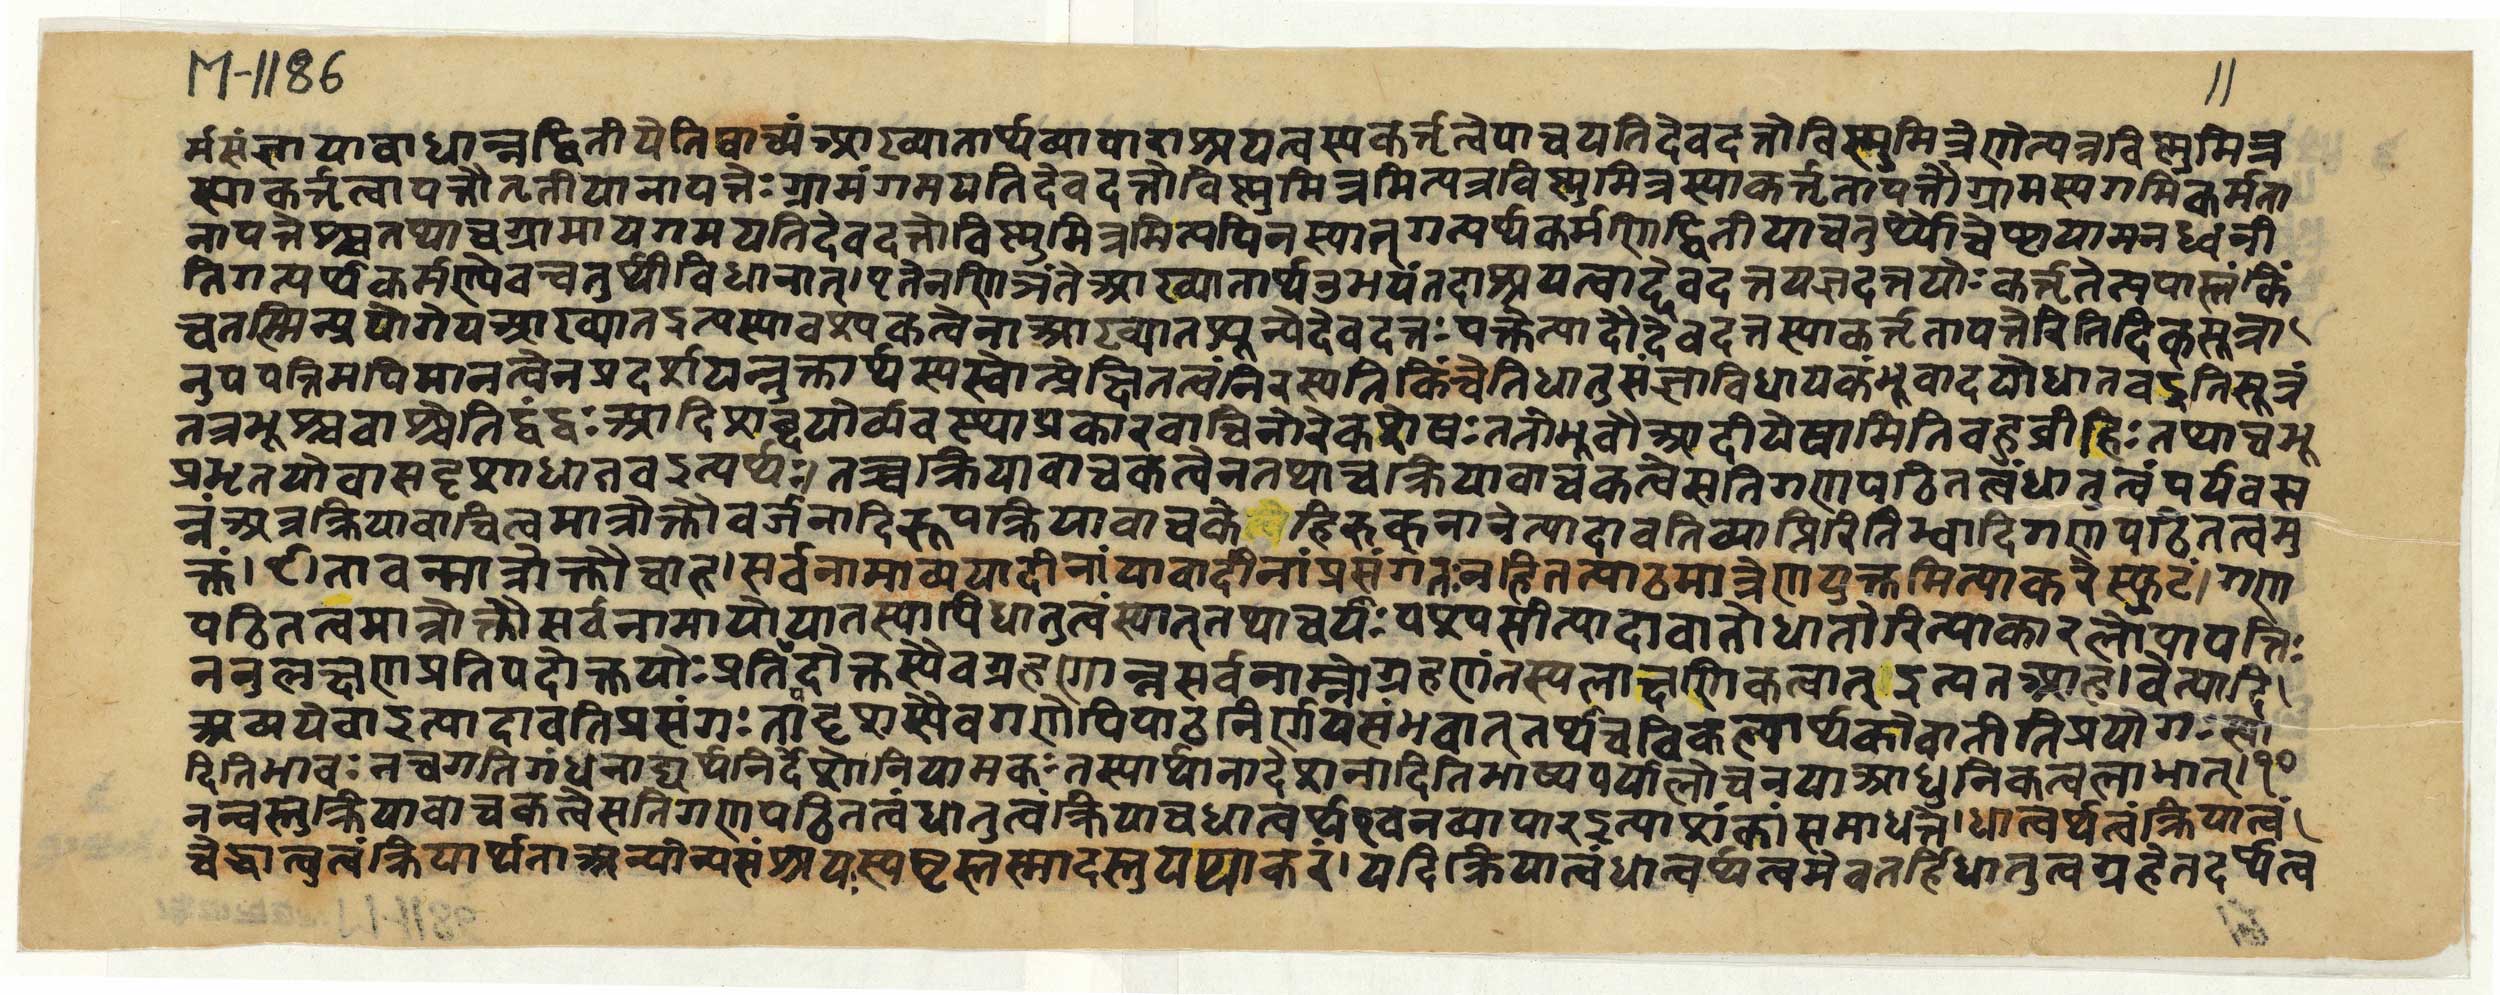 M-1186
11
र्मसंज्ञायावाधान्नद्वितीयेतिवाच्यंआख्यातार्थव्यापाराश्रयत्वस्यकर्त्तृत्वेपाचयतिदेवदत्तोविष्णुमित्रेणेत्यत्रविष्णुमित्र
स्याकर्त्तृत्वापत्तौतृतीयानापत्तेः ग्रामंगमयतिदेवदत्तोविष्णुमित्रमित्यत्रविष्णुमित्रस्याकर्त्तृतापत्तौग्रामस्यगमिकर्मता
नापत्तेश्चतथाचग्रामायगमयतिदेवदत्तोविष्णुमित्रमित्यपिनस्यात् गत्यर्थकर्मणिद्वितीयाचतुर्थ्यौचेष्टायामनध्वनी
तिगत्यर्थकर्मण्येवचतुर्थीविधानात्। एतेनणिजंतेआख्यातार्थउभयंतदाश्रयत्वाद्देवदत्तयज्ञदत्तयोः कर्त्तृतेत्यपास्तंकिं
चतस्मिन्प्रयोगेयआख्यातइत्यस्यावश्यकत्वेनाआख्यातशून्येदेवदत्तः पक्तेत्यादौदेवदत्तस्याकर्त्तृतापत्तेरितिदिक् सूत्रा
नुपपत्तिमपिमानत्वेनप्रदर्शयन्नुक्तार्थस्यस्वोत्प्रेक्षितत्वंनिरस्यतिकिंचेतिधातुसंज्ञाविधायकंभूवादयोधातवइतिसूत्रं
तत्रभूश्चवाश्चेतिद्वंद्वः आदिशब्दयोर्व्यवस्थाप्रकारवाचिनोरेकशेषः ततोभूवौआदीयेषामितिवहुव्रीहिः तथाचभू
प्रभृतयोवासदृशाधातवइत्यर्थः। तच्चक्रियावाचकत्वेनतथाचक्रियावाचकत्वेसतिगणपठितत्वंधातुत्वंपर्यवस
न्नंअत्रक्रियावाचित्वमात्रोक्तौवर्जनादिरूपक्रियावाचकेत्वेहिरुक् नानेत्यादावतिव्याप्तिरितिभ्वादिगणपठितत्वमु
क्तं। तावन्मात्रोक्तौचाह। सर्वनामाव्ययादीनांयावादीनांप्रसंगतः नहितत्पाठमात्रेणयुक्तमित्याकरेस्फुटं। गण
पठितत्वमात्रोक्तौसर्वनामायोयातस्यापिधातुत्वंस्यात् तथाचर्यः पश्यसीत्यादावातोधातोरित्याकारलोपापत्तिः
ननुलक्षणप्रतिपदोक्तयोः प्रतिपदोक्तस्यैवग्रहणान्नसर्वनाम्नोग्रहणंतस्यलाक्षणिकत्वात् इत्यतआह। वेत्यादि
अव्ययेवाइत्यादावतिप्रसंगः तादृशस्यैवगणेपिपाठनिर्णयसंभवात् तर्थचविकल्पार्थकोवातीतिप्रयोगः स्या
दितिभावः नचगतिगंधनाद्यर्थनिर्देशोनियामकः तस्यार्थानादेशनादितिभाष्यपर्यालोचनयाआधुनिकत्वलाभात्। १०
नन्वस्तुक्रियावाचकत्वेसतिगणपठितत्वंधातुत्वंक्रियाचधात्वर्थएवनव्यापारइत्याशंकांसमाधत्ते। धात्वर्थत्वंक्रियात्वं
चेद्धातुत्वंक्रियार्थताअन्योन्यसंश्रयः स्पष्टस्तस्मादस्तुयथाकरं। यदिक्रियात्वंधात्वर्थत्वमेवतर्हिधातुत्वग्रहेतदर्थत्व